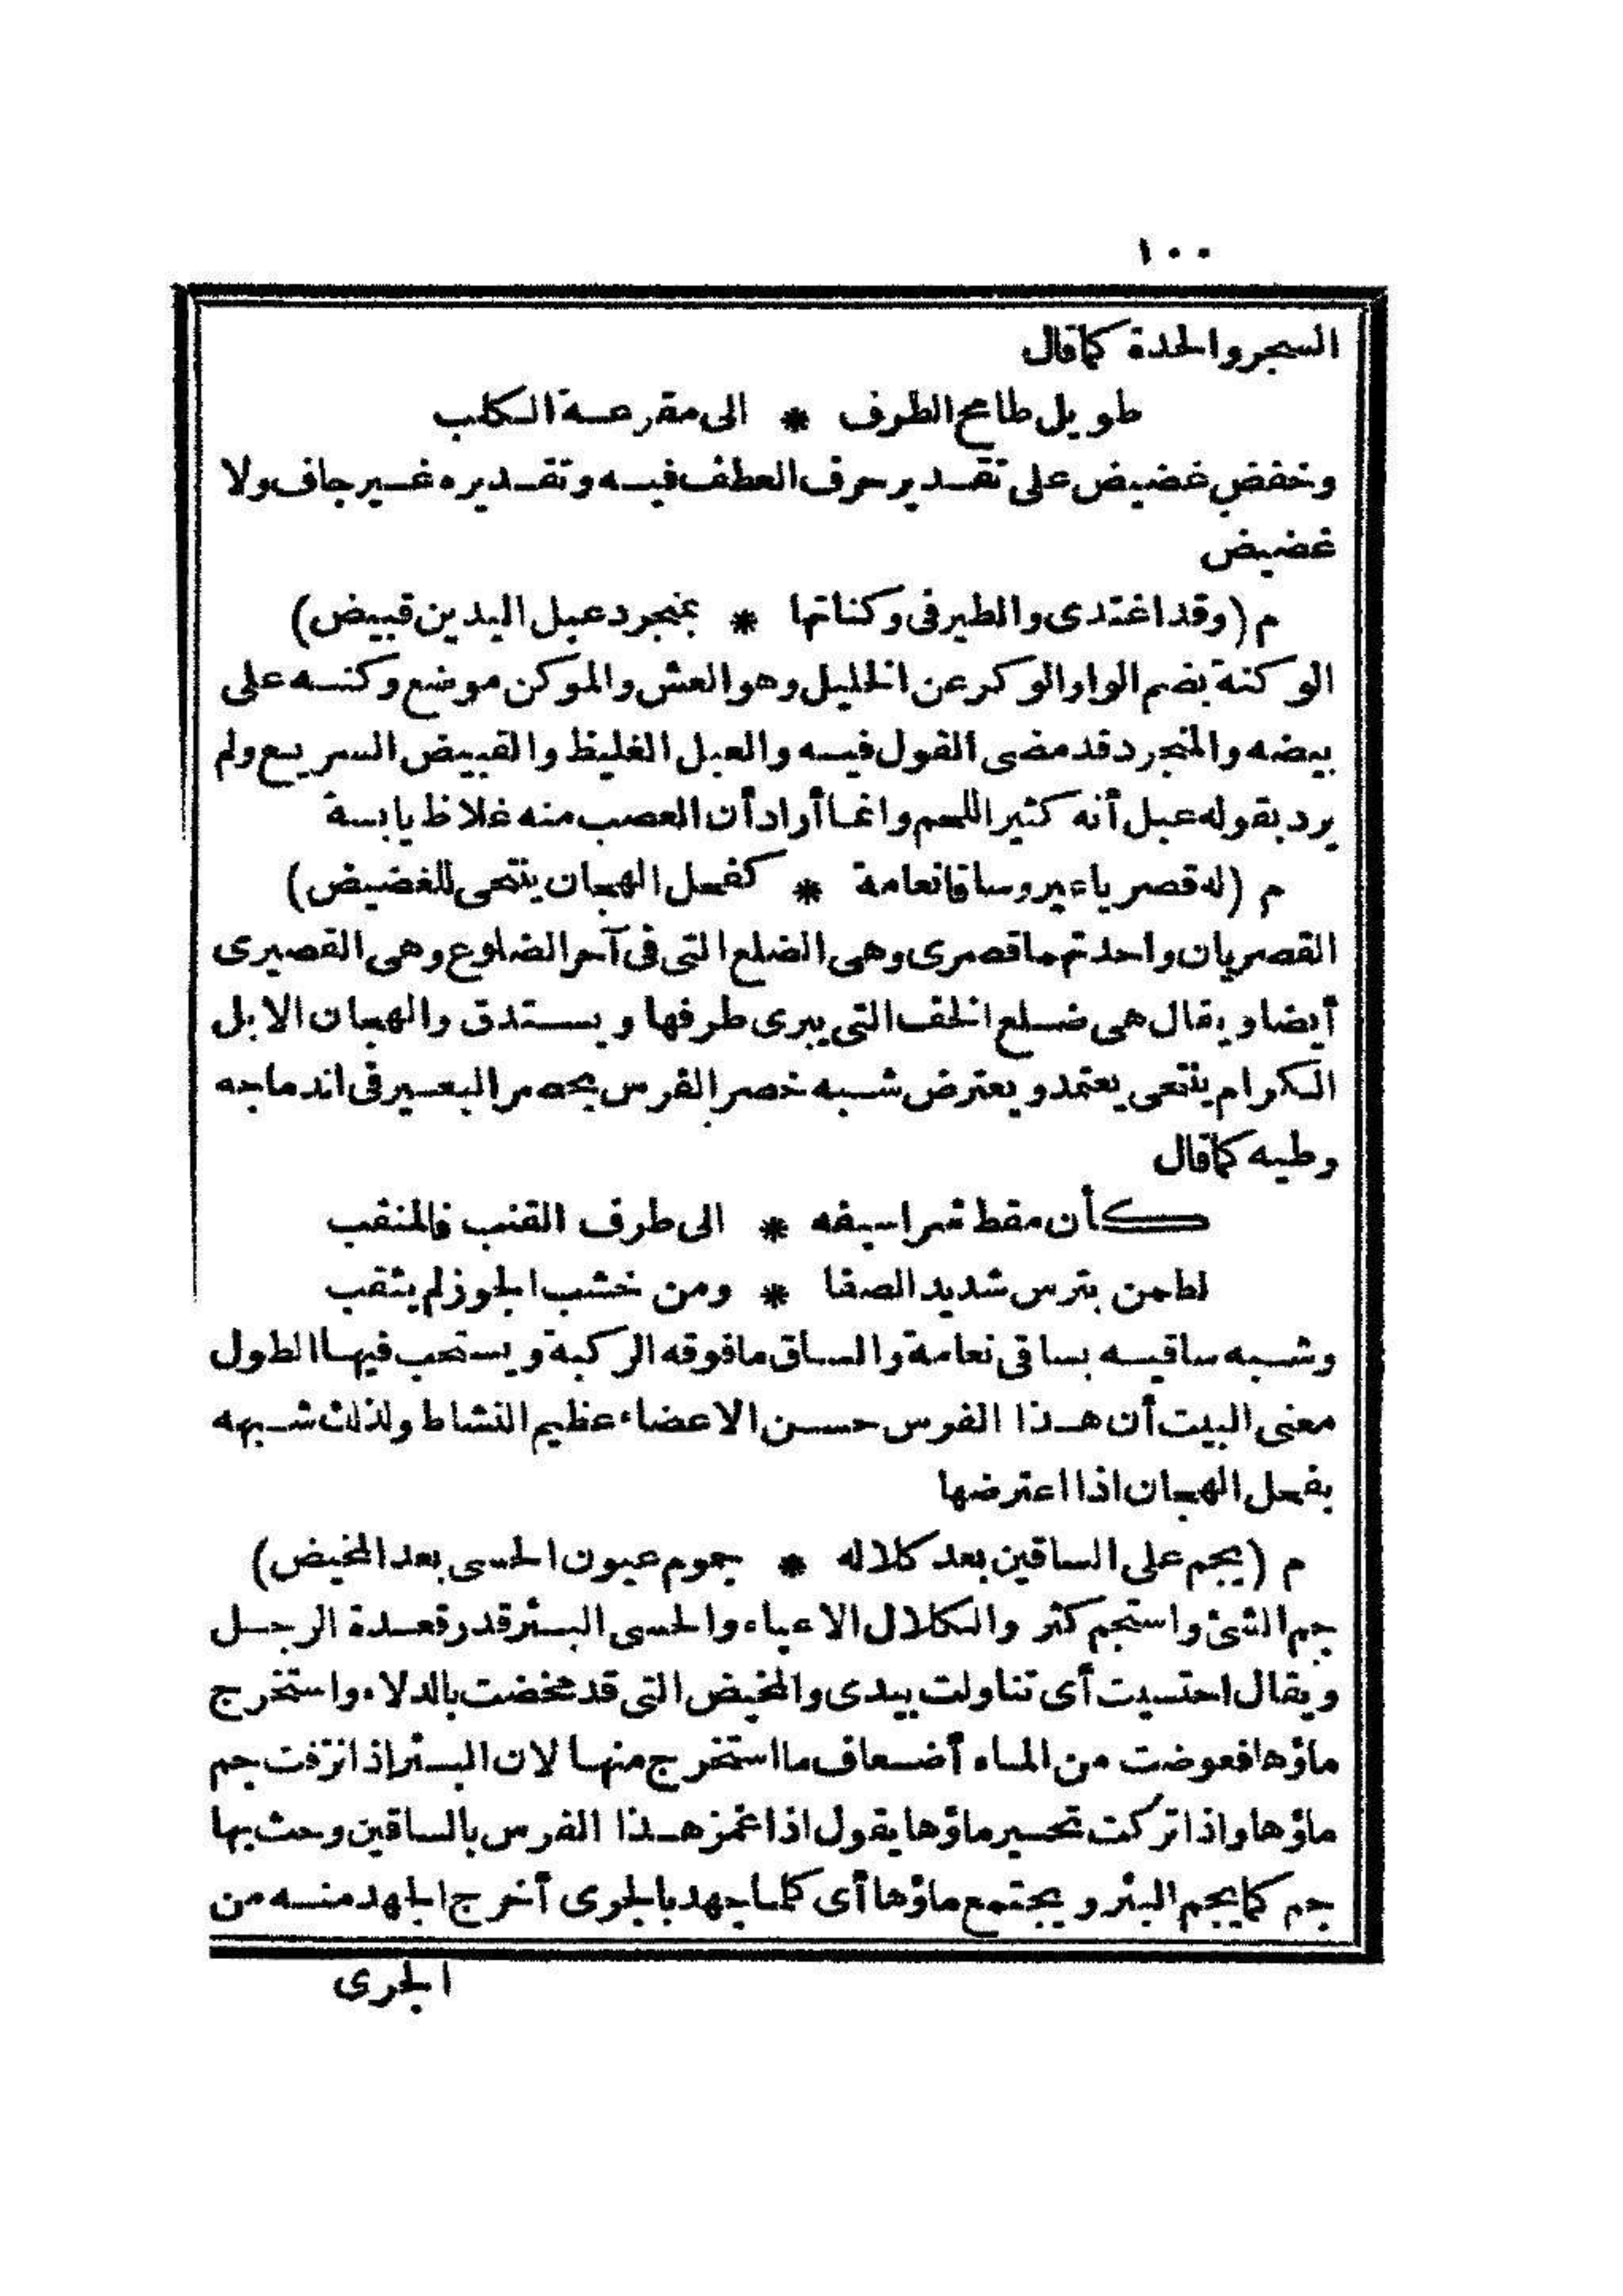 ١٠٠
السحر والحدة كما قال
طويل طامح الطرف * الى مقرعة الكلب
وخفض غضيض على تقدير حرف العطف فيه وتقديره غير جاف ولا
غضيض
م (وقد اغتدى والطير فى وكناتها * بمنجرد عبل اليدين قبيض)
الوكنة بضم الواو الوكر عن الخليل وهو العش والموكن موضع وكنه على
بيضه والمنجرد قد مضى القول فيه والعبل الغليظ والقبيض السريع ولم
يرد بقوله عبل أنه كثير اللحم وانما أراد أن العصب منه غلاظ يابسة
م (له قصريا عير وساقا نعامة * كفحل الهجان ينتحى للغضيض)
القصريان واحدتهما قصرى وهى الضلع التى فى آخر الضلوع وهى القصيرى
أيضا ويقال هى ضلع الخلف التى يبرى طرفها ويستدق والهجان الابل
الكرام ينتحى يعتمد ويعترض شبه خصر الفرس بخصر البعير فى اندماجه
وطيه كما قال
كأن مقط شراسيفه * الى طرف القنب فالمنقب
لطمن بترس شديد الصفا * ومن خشب الجوز لم يثقب
وشبه ساقيه بساقى نعامة والساق ما فوقه الركبة ويستحب فيها الطول
معنى البيت أن هذا الفرس حسن الاعضاء عظيم النشاط ولذلك شبهه
بفحل الهجان اذا اعترضها
م (يجم على الساقين بعد كلاله * جموم عيون الحسى بعد المخيض)
جم الشئ واستجم كثر والكلال الاعياء والحسى البئر قدر قعدة الرجل
ويقال احتسيت أى تناولت بيدى والمخيض التى قد مخضت بالدلاء واستخرج
ماؤها فعوضت من الماء أضعاف ما استخرج منها لان البئر اذا نزفت جم
ماؤها واذا تركت تحسير ماؤها يقول اذا غمز هذا الفرس بالساقين وحث بها
جم كما يجم البئر ويجتمع ماؤها أى كلما جهد بالجرى أخرج الجهد منه من
الجرى